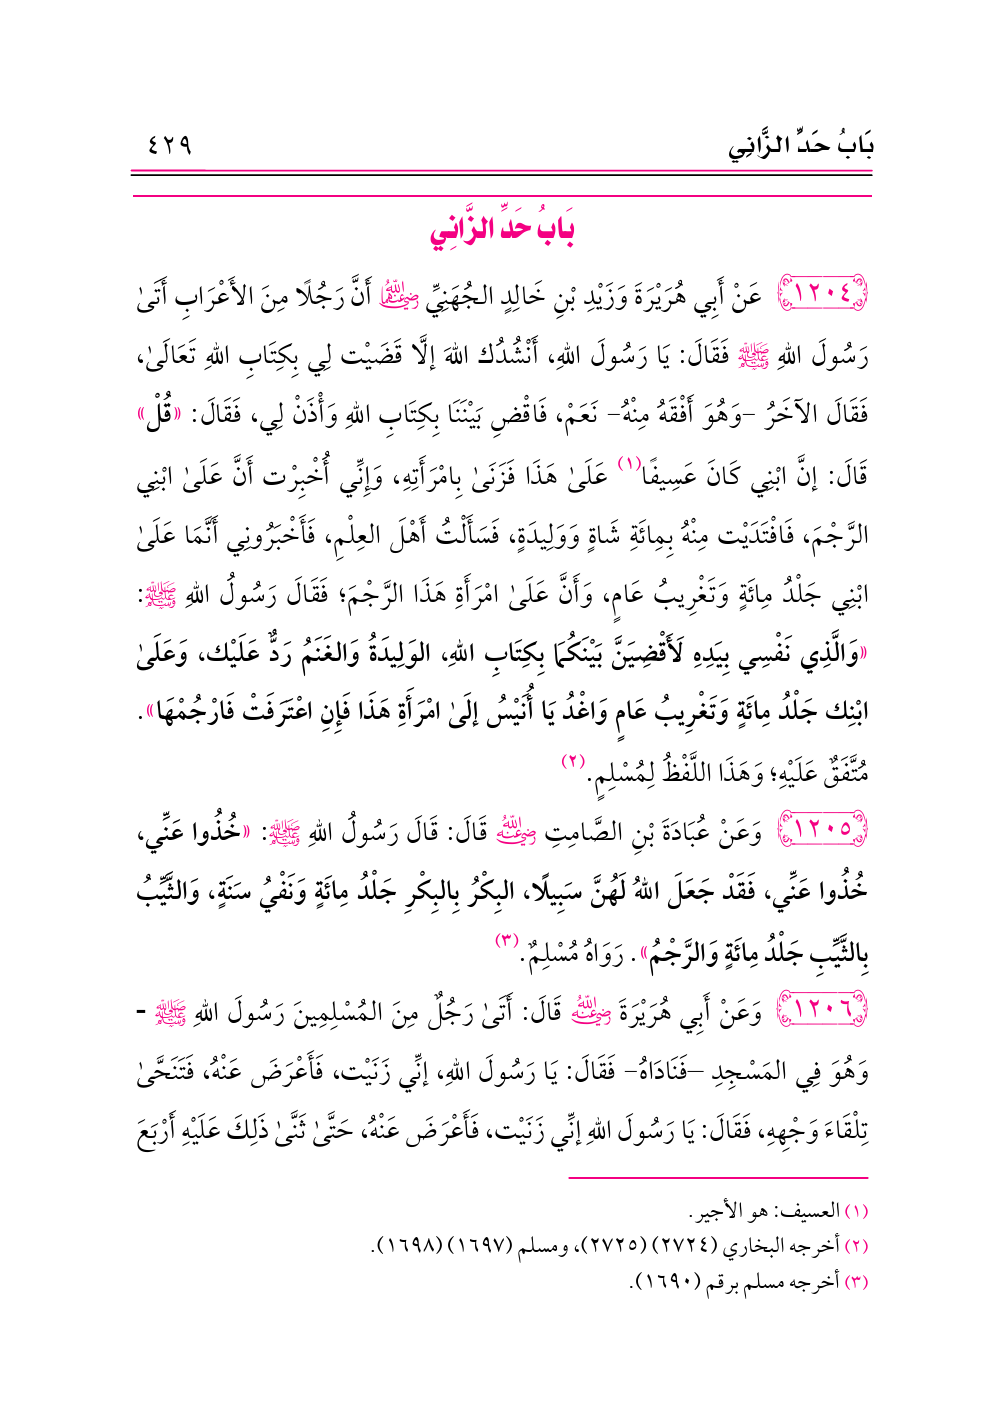 بَابُ حَدِّ الزَّانِي
٤٢٩
بَابُ حَدِّ الزَّانِي
١٢٠٤ عَنْ أَبِي هُرَيْرَةَ وَزَيْدِ بْنِ خَالِدٍ الجُهَنِيِّ رضي الله عنهما أَنَّ رَجُلًا مِنَ الأَعْرَابِ أَتَىٰ
رَسُولَ اللهِ ﷺ فَقَالَ: يَا رَسُولَ اللهِ، أَنْشُدُك اللهَ إلَّا قَضَيْت لِي بِكِتَابِ اللهِ تَعَالَىٰ،
فَقَالَ الآخَرُ –وَهُوَ أَفْقَهُ مِنْهُ– نَعَمْ، فَاقْضِ بَيْنَنَا بِكِتَابِ اللهِ وَأْذَنْ لِي، فَقَالَ: «قُلْ»
قَالَ: إنَّ ابْنِي كَانَ عَسِيفًا(١) عَلَىٰ هَذَا فَزَنَىٰ بِامْرَأَتِهِ، وَإِنِّي أُخْبِرْت أَنَّ عَلَىٰ ابْنِي
الرَّجْمَ، فَافْتَدَيْت مِنْهُ بِمِائَةِ شَاةٍ وَوَلِيدَةٍ، فَسَأَلْتُ أَهْلَ العِلْمِ، فَأَخْبَرُونِي أَنَّمَا عَلَىٰ
ابْنِي جَلْدُ مِائَةٍ وَتَغْرِيبُ عَامٍ، وَأَنَّ عَلَىٰ امْرَأَةِ هَذَا الرَّجْمَ؛ فَقَالَ رَسُولُ اللهِ ﷺ:
«وَالَّذِي نَفْسِي بِيَدِهِ لَأَقْضِيَنَّ بَيْنَكُمَا بِكِتَابِ اللهِ، الوَلِيدَةُ وَالغَنَمُ رَدٌّ عَلَيْك، وَعَلَىٰ
ابْنِك جَلْدُ مِائَةٍ وَتَغْرِيبُ عَامٍ وَاغْدُ يَا أُنَيْسُ إلَىٰ امْرَأَةِ هَذَا فَإِنِ اعْتَرَفَتْ فَارْجُمْهَا».
مُتَّفَقٌ عَلَيْهِ؛ وَهَذَا اللَّفْظُ لِمُسْلِمٍ.(٢)
١٢٠٥ وَعَنْ عُبَادَةَ بْنِ الصَّامِتِ رضي الله عنه قَالَ: قَالَ رَسُولُ اللهِ ﷺ: «خُذُوا عَنِّي،
خُذُوا عَنِّي، فَقَدْ جَعَلَ اللهُ لَهُنَّ سَبِيلًا، البِكْرُ بِالبِكْرِ جَلْدُ مِائَةٍ وَنَفْيُ سَنَةٍ، وَالثَّيِّبُ
بِالثَّيِّبِ جَلْدُ مِائَةٍ وَالرَّجْمُ». رَوَاهُ مُسْلِمٌ.(٣)
١٢٠٦ وَعَنْ أَبِي هُرَيْرَةَ رضي الله عنه قَالَ: أَتَىٰ رَجُلٌ مِنَ المُسْلِمِينَ رَسُولَ اللهِ ﷺ -
وَهُوَ فِي المَسْجِدِ –فَنَادَاهُ– فَقَالَ: يَا رَسُولَ اللهِ، إنِّي زَنَيْت، فَأَعْرَضَ عَنْهُ، فَتَنَحَّىٰ
تِلْقَاءَ وَجْهِهِ، فَقَالَ: يَا رَسُولَ اللهِ إنِّي زَنَيْت، فَأَعْرَضَ عَنْهُ، حَتَّىٰ ثَنَّىٰ ذَلِكَ عَلَيْهِ أَرْبَعَ
(١) العسيف: هو الأجير.
(٢) أخرجه البخاري (٢٧٢٤) (٢٧٢٥)، ومسلم (١٦٩٧) (١٦٩٨).
(٣) أخرجه مسلم برقم (١٦٩٠).